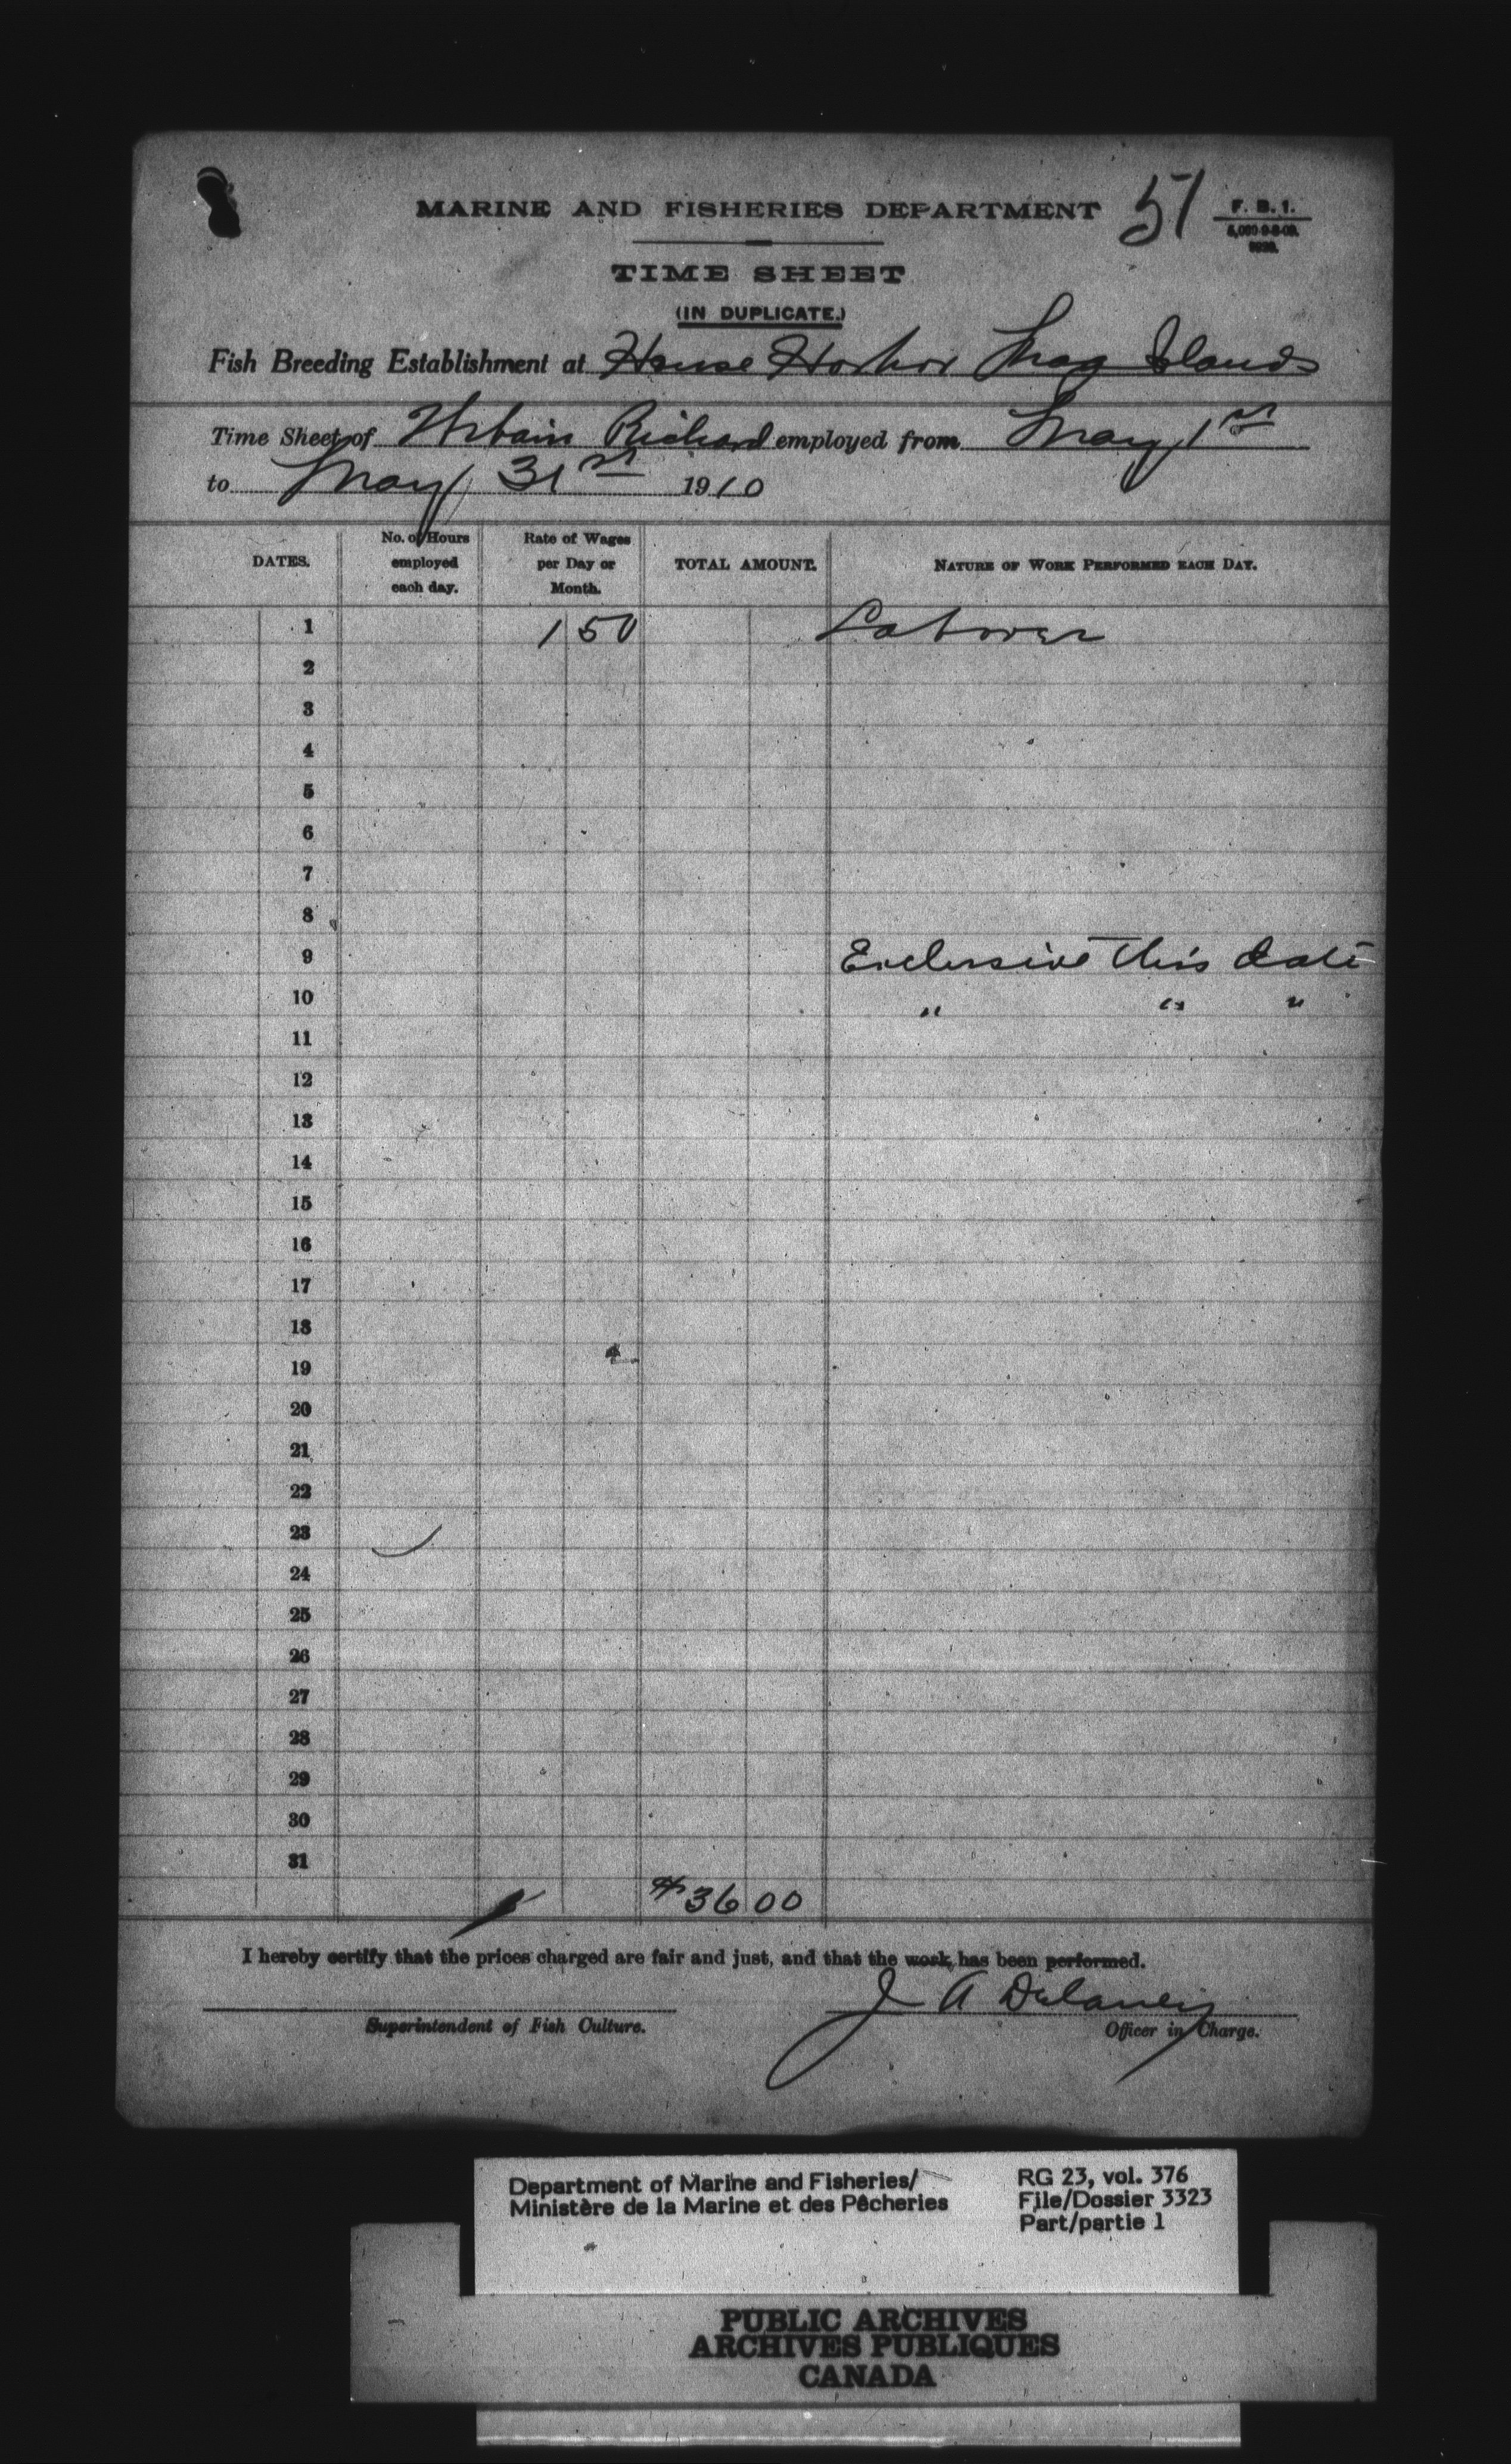 MARINE AND FISHERIES DEPARTMENT 51 F. B. 1.
5,000-9-8-09.
TIME SHEET
(IN DUPLICATE.)
Fish Breeding Establishment at House Harbor Mag Islands
Time Sheet of Urbain Richard employed from May 1st
to May 31st 1910
DATES. No. of Hours employed each day. Rate of Wages per Day or Month. TOTAL AMOUNT. NATURE OF WORK PERFORMED EACH DAY.
1 1 50 Labourer
2
3
4
5
6
7
8
9 Exclusive this date
10 " " "
11
12
13
14
15
16
17
18
19
20
21
22
23
24
25
26
27
28
29
30
31
$36 00
I hereby certify that the prices charged are fair and just, and that the work has been performed.
J A Delaney
Superintendent of Fish Culture. Officer in Charge.
Department of Marine and Fisheries/ RG 23, vol. 376
Ministère de la Marine et des Pêcheries File/Dossier 3323
Part/partie 1
PUBLIC ARCHIVES
ARCHIVES PUBLIQUES
CANADA